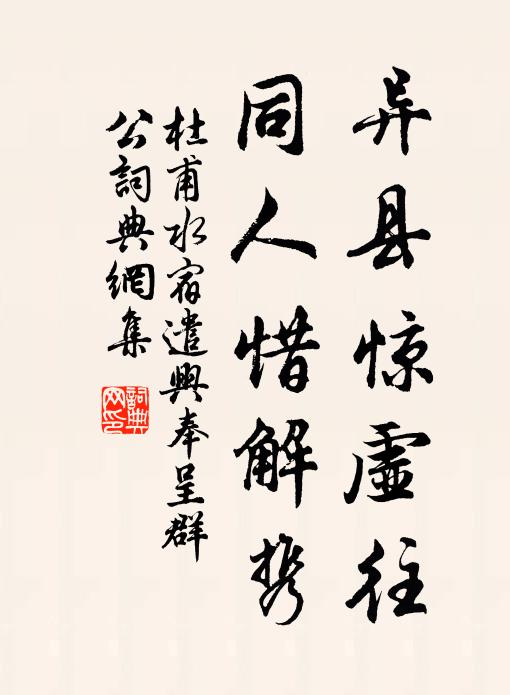 异县惊虚往
同人惜解携
杜甫水宿遣興奉呈群
公詞典網集
詞典
网印